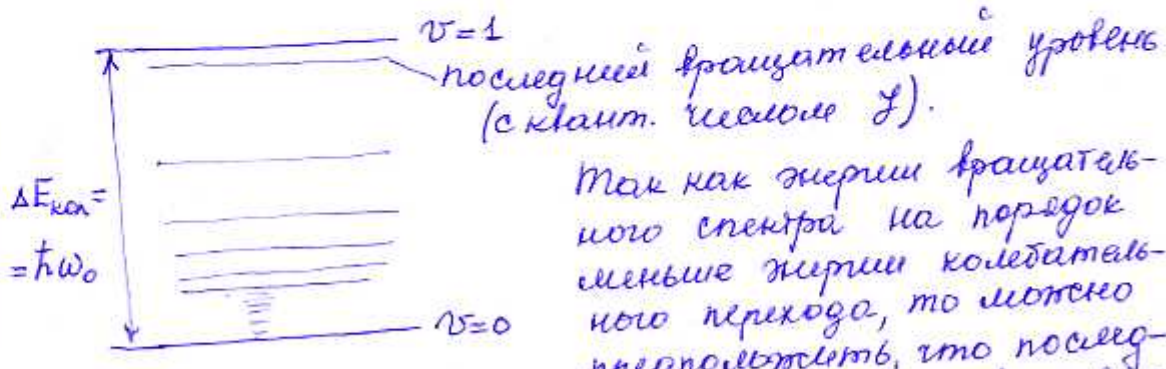 v=1
последний вращательный уровень
(с квант. числом J).
ΔEкол=
=ħω₀
v=0
Так как энергии вращатель-
ного спектра на порядок
меньше энергии колебатель-
ного перехода, то можно
предположить, что послед-